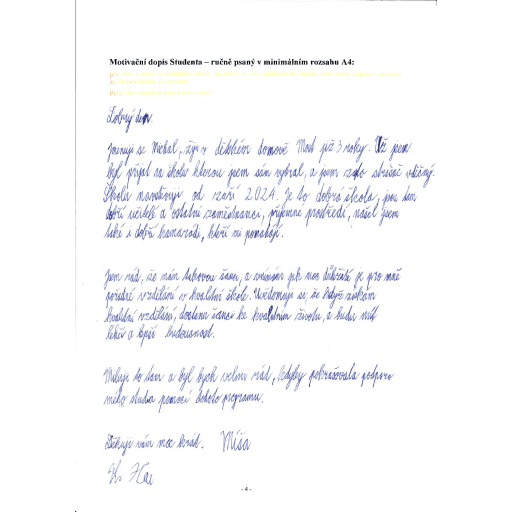 Motivační dopis Studenta – ručně psaný v minimálním rozsahu A4:
Dobrý den
Jmenuji se Michal, žiji v dětském domově Most již 3 roky. Už jsem
byl přijat na školu kterou jsem sám vybral, a jsem za to strašně vděčný.
Školu navštěvuji od září 2024. Je to dobrá škola, jsou tam
dobří učitelé a ostatní zaměstnanci, příjemné prostředí, našel jsem
také i dobří kamarádi, kteří mi pomáhají.
Jsem rád, že mám takovou šanci, a vnímám jak moc důležité je pro mně
pořádné vzdělání v kvalitní škole. Uvědomuji si, že když získám
kvalitní vzdělání, dostanu šanci ke kvalitním životu, a budu mít
lehčí a lepší budoucnost.
Miluji to tam a byl bych velmi rád, kdyby pokračovala podpora
mého studia pomocí tohoto programu.
Děkuji vám moc krát. Míša
- 4 -